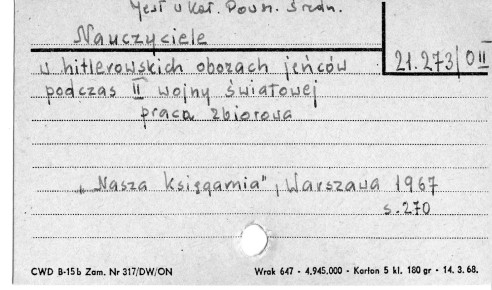 Jest u Kat. Powsz. Średn.
Nauczyciele
w hitlerowskich obozach jeńców
21.273/O II
podczas II wojny światowej
praca zbiorowa
"Nasza Księgarnia", Warszawa 1967
s. 270
CWD B-15b Zam. Nr 317/DW/ON Wrak 647 - 4,945.000 - Karton 5 kl. 180 gr - 14. 3. 68.